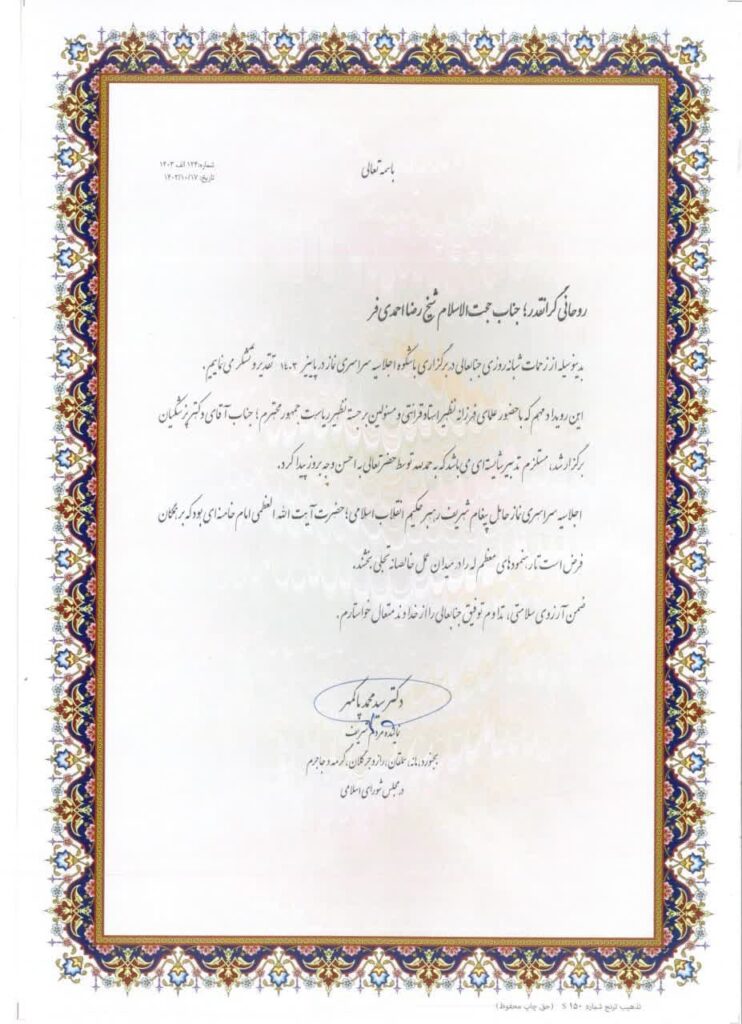 باسمه تعالی
شماره: ۱۲۴ الف ۱۴۰۳
تاریخ: ۱۴۰۳/۱۰/۱۷
روحانی گرانقدر؛ جناب حجت الاسلام شیخ رضا احمدی فر
بدینوسیله از زحمات شبانه روزی جنابعالی در برگزاری باشکوه اجلاسیه سراسری نماز در پاییز ۱۴۰۳ تقدیر و تشکر می نماییم.
این رویداد مهم که با حضور علمای فرزانه نظیر استاد قرائتی و مسئولین برجسته نظیر ریاست جمهور محترم؛ جناب آقای دکتر پزشکیان
برگزار شد، مستلزم تدبیر شایسته ای می باشد که به حمدلله توسط حضرتعالی به احسن وجه بروز پیدا کرد.
اجلاسیه سراسری نماز حامل پیغام شریف رهبر حکیم انقلاب اسلامی؛ حضرت آیت الله العظمی امام خامنه ای بود که بر همگان
فرض است تا رهنمودهای معظم له را در میدان عمل خالصانه تجلی بخشند.
ضمن آرزوی سلامتی، تداوم توفیق جنابعالی را از خداوند متعال خواستارم.
دکتر سید محمد پاکمهر
نماینده مردم شریف
بجنورد، مانه، سملقان، راز و جرگلان، گرمه و جاجرم
در مجلس شورای اسلامی
تذهیب ترنج شماره S ۱۵۰ (حق چاپ محفوظ)